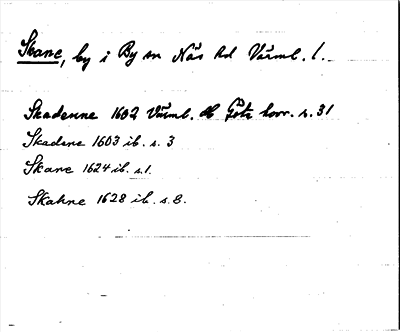 Skane, by i By sn Näs hd Värml. l.
Skadenne 1602 Värml. hl Göta horr. s. 31
Skadene 1603 ib. s. 3
Skane 1624 ib. s. 1.
Skahne 1628 ib. s. 8.